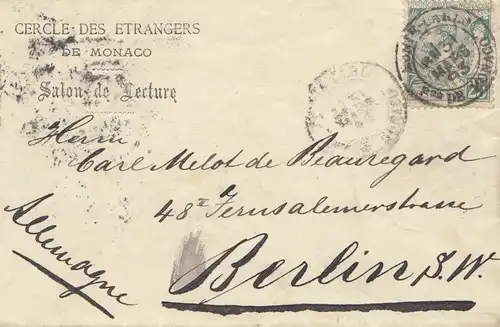 CERCLE DES ETRANGERS
DE MONACO
Salon de Lecture
Herrn
Carl Melot de Beauregard
48 II Jerusalemerstrasse
Berlin, S.W.
Allemagne